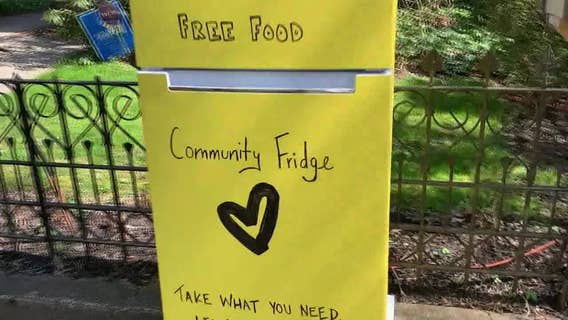 FREE FOOD
Community Fridge
TAKE WHAT YOU NEED